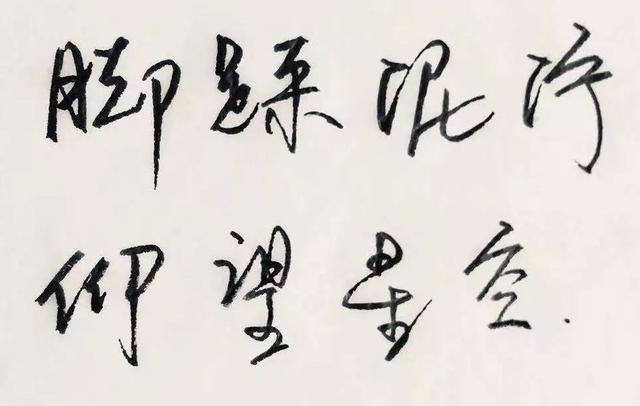 脚踩泥泞
仰望星空.